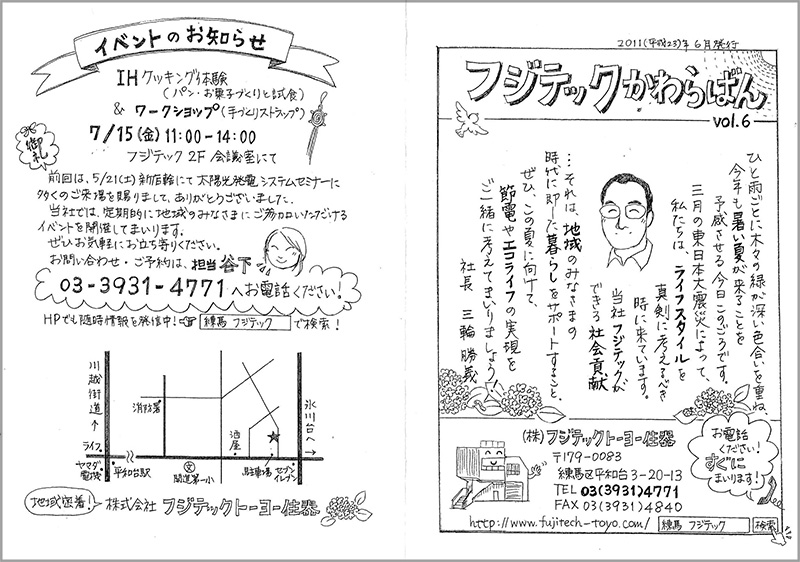 イベントのお知らせ
IHクッキング体験
(パン・お菓子づくりと試食)
& ワークショップ(手づくりストラップ)
7/15(金)11:00-14:00
フジテック 2F 会議室にて
御礼
前回は、5/21(土)新店舗にて太陽光発電システムセミナーに
多くのご来場を賜りまして、ありがとうございました。
当社では、定期的に地域のみなさまにご参加いただける
イベントを開催してまいります。
ぜひお気軽にお立ち寄りください。
お問い合わせ・ご予約は、担当 谷下
03-3931-4771へお電話ください!
HPでも随時情報を発信中! 練馬 フジテック で検索!
川越街道↑
ライフ
ヤマダ電機
平和台駅
消防署
文
開進第一小
酒屋
駐車場
セブンイレブン
氷川台へ→
地域密着!
株式会社 フジテックトーヨー住器
2011(平成23)年6月発行
フジテックかわらばん
vol.6
ひと雨ごとに木々の緑が深い色合いを重ね、
今年も暑い夏が来ることを
予感させる今日このごろです。
三月の東日本大震災によって、
私たちは ライフスタイルを
真剣に考えるべき
時に来ています。
当社フジテックが
できる社会貢献
…それは、地域のみなさまの
時代に即した暮らしをサポートすること。
ぜひ、この夏に向けて、
節電やエコライフの実現を
ご一緒に考えてまいりましょう!
社長 三輪 勝義
(株)フジテックトーヨー住器
〒179-0083
練馬区平和台3-20-13
TEL 03(3931)4771
FAX 03(3931)4840
http://www.fujitech-toyo.com/ 練馬 フジテック 検索
お電話
ください!
すぐに
まいります!